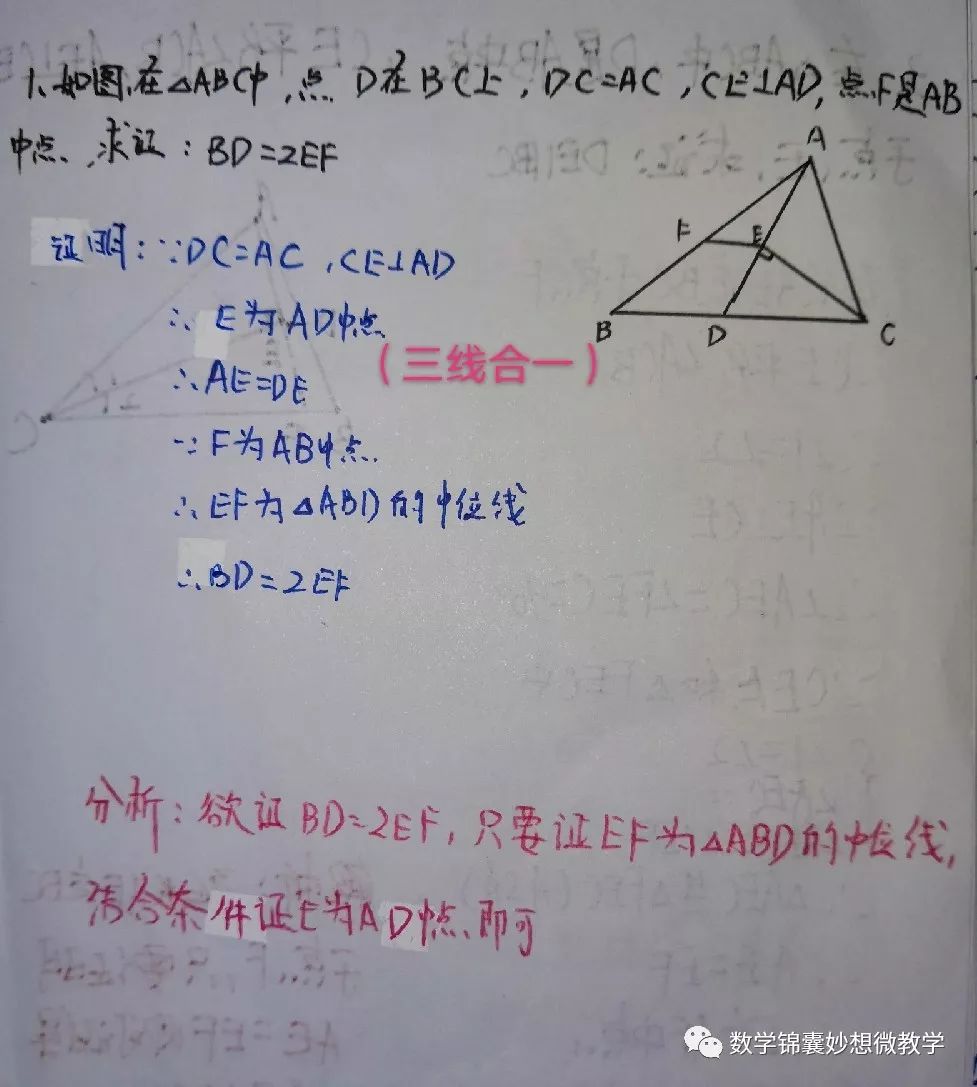 1、如图,在△ABC中,点D在BC上,DC=AC,CE⊥AD,点F是AB
中点、求证:BD=2EF
A
F
E
B
D
C
证明:∵DC=AC,CE⊥AD
∴E为AD中点
(三线合一)
∴AE=DE
∵F为AB中点.
∴EF为△ABD的中位线
∴BD=2EF
分析:欲证BD=2EF,只要证EF为△ABD的中位线,
结合条件证E为AD中点、即可
数学锦囊妙想微教学